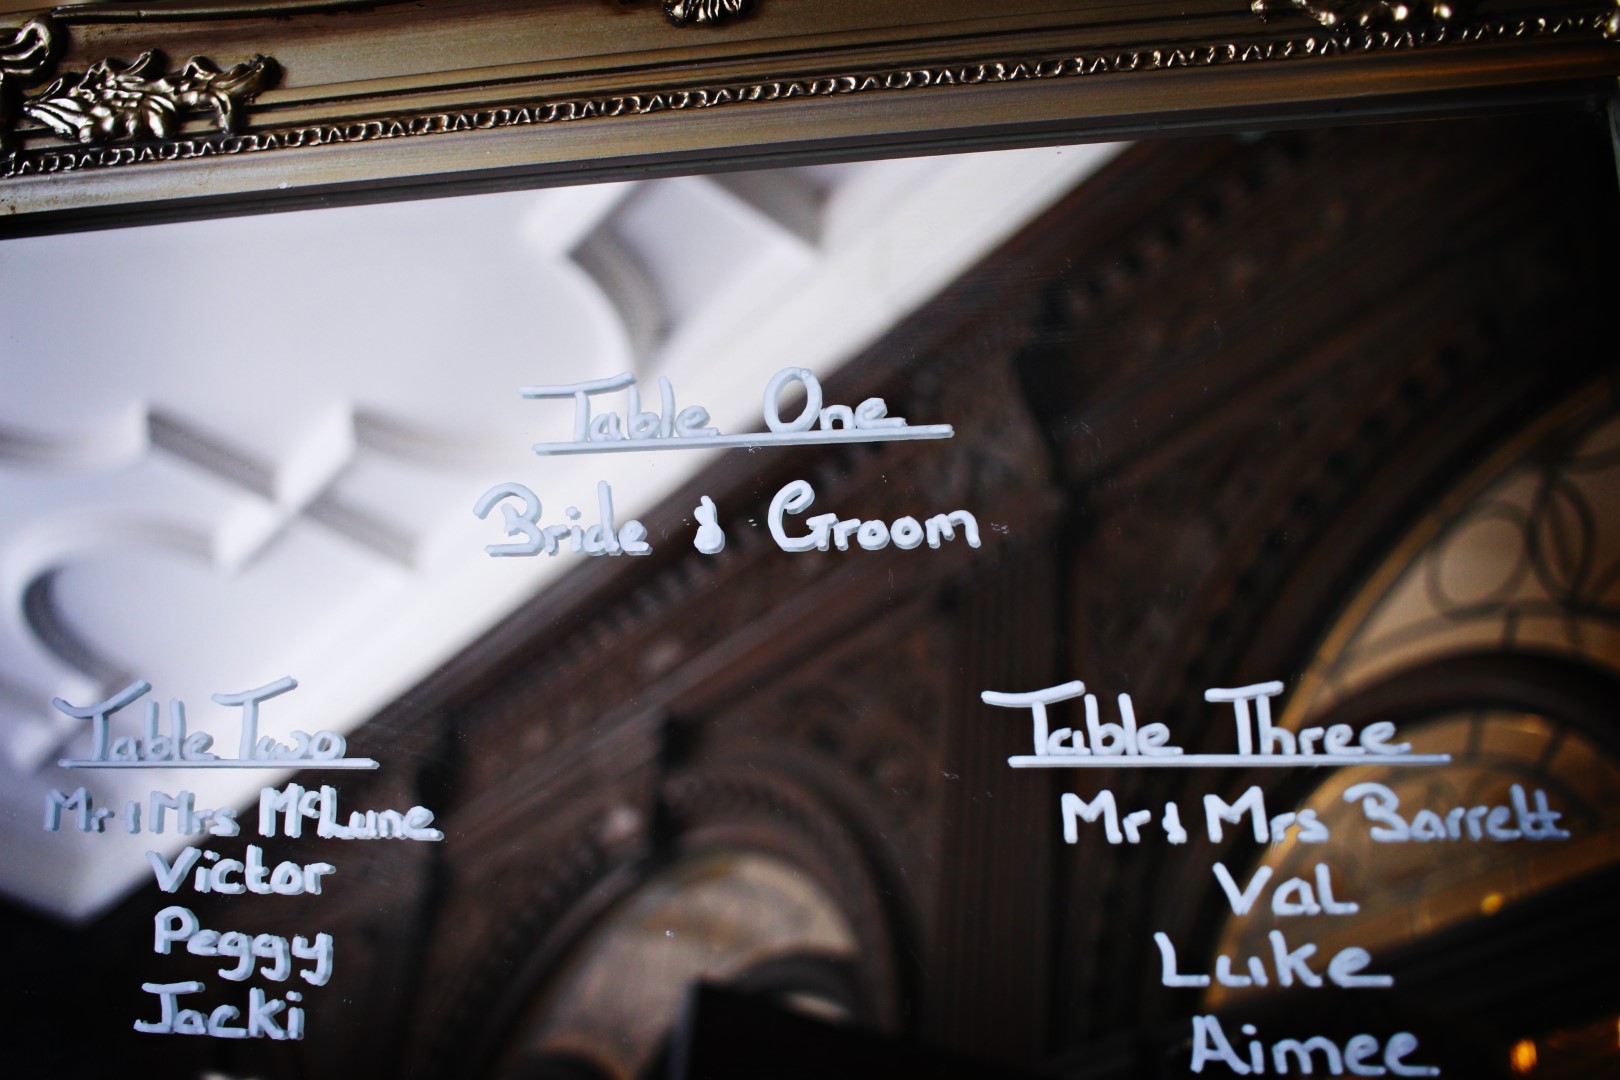 Table One
Bride & Groom
Table Two
Mr & Mrs McLune
Victor
Peggy
Jacki
Table Three
Mr & Mrs Barrett
Val
Luke
Aimee